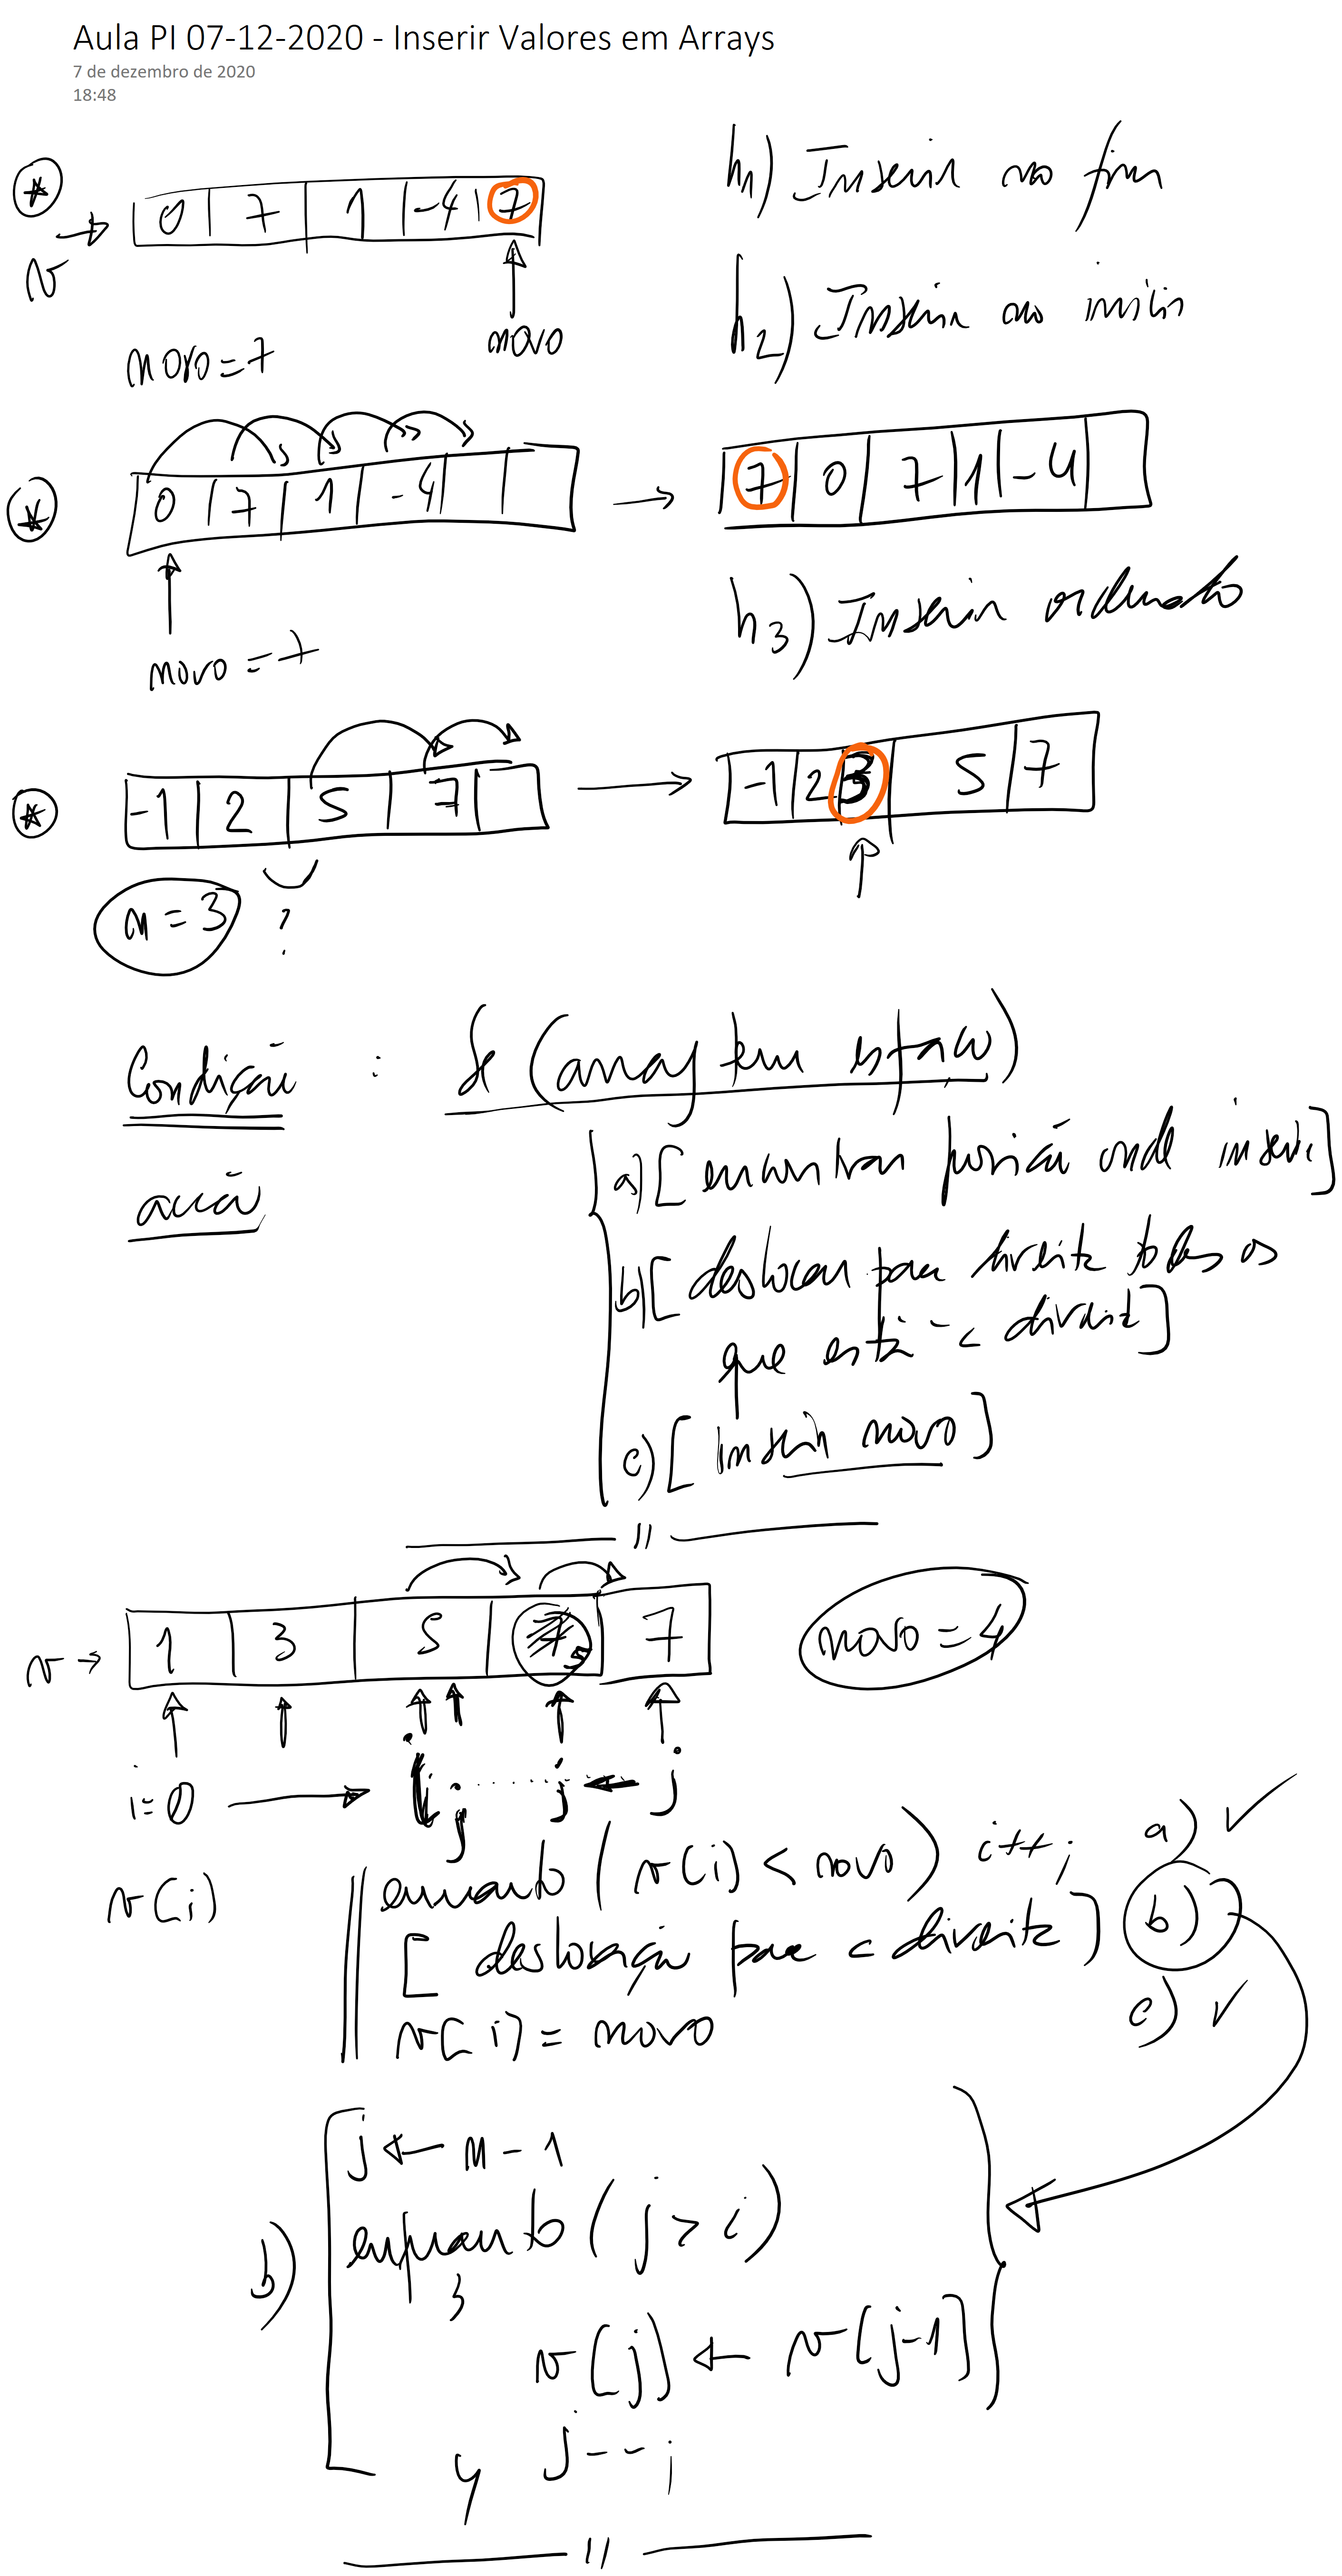 Aula PI 07-12-2020 - Inserir Valores em Arrays
7 de dezembro de 2020
18:48
h1) Inserir no fim
v → 0 7 1 -4 7
novo
novo = 7
h2) Inserir no início
0 7 1 -4 → 7 0 7 1 -4
novo = 7
h3) Inserir ordenado
-1 2 5 7 → -1 2 3 5 7
n = 3 ?
Condição : Se (array tem espaço)
acção
a) [encontrar posição onde inserir]
b) [deslocar para direita todos os
que estão à direita]
c) [inserir novo]
v → 1 3 5 7 5 7 novo = 4
i=0 → i j j ← j
v[i] enquanto (v[i] < novo) i++; a) ✓
[deslocação para a direita] b)
v[i] = novo c) ✓
b) j ← n - 1
enquanto (j > i)
{
v[j] ← v[j-1]
j--;
}